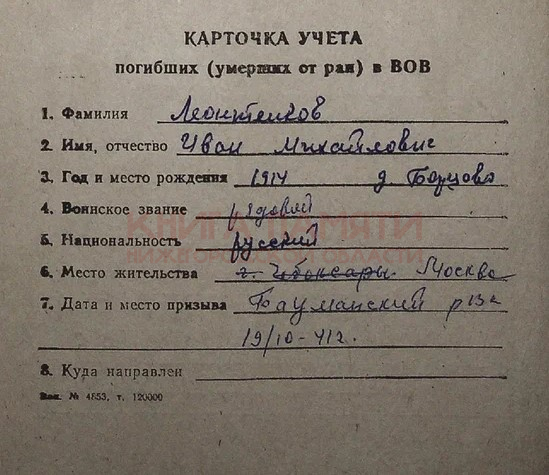 КАРТОЧКА УЧЕТА
погибших (умерших от ран) в ВОВ
1. Фамилия Леонтенков
2. Имя, отчество Иван Михайлович
3. Год и место рождения 1914 д. Борцово
4. Воинское звание рядовой
КНИГА ПАМЯТИ
5. Национальность русский
НИЖЕГОРОДСКОЙ ОБЛАСТИ
6. Место жительства г. Чебоксары Москва
7. Дата и место призыва Бауманский рвк
19/10-41г.
8. Куда направлен
Зак. № 4653, т. 120000